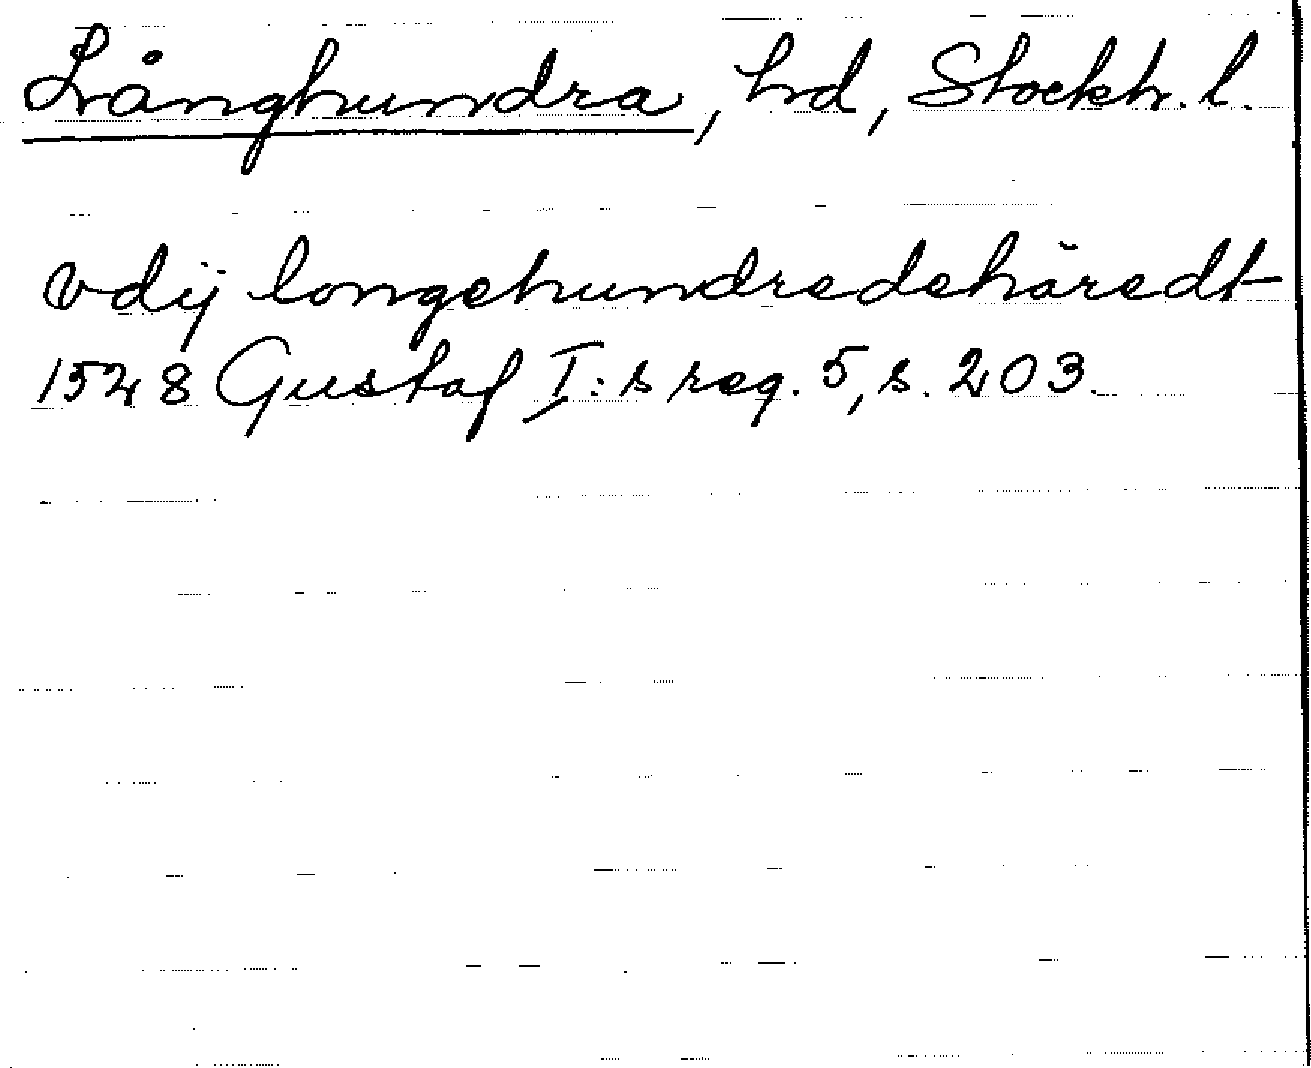 Långhundra, hd, Stockh. l.
vdij longehundredehäredt
1528 Gustaf I:s reg. 5, s. 203.